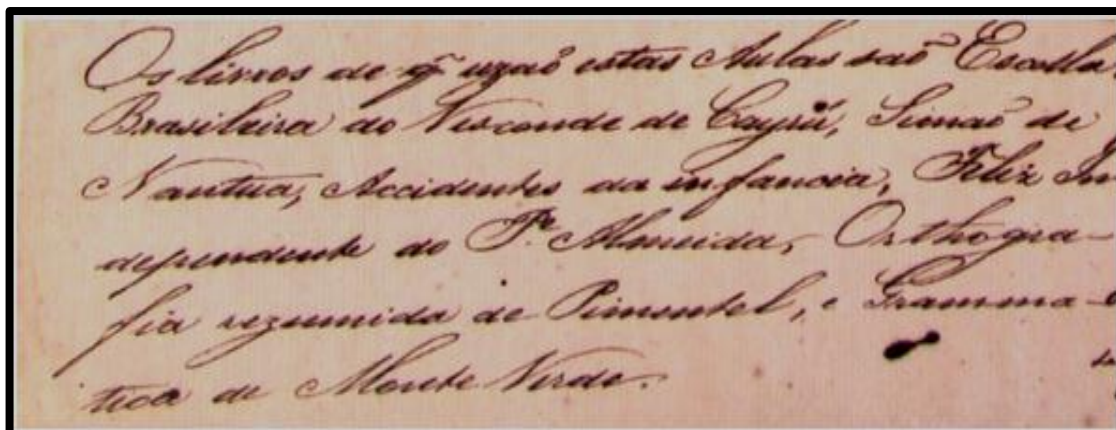 Os livros de q̃ uzaõ estas Aulas saõ Escolla
Brasileira do Visconde de Cayrú, Simaõ de
Nantua, Accidentes da infancia, Feliz In
dependente do Pe. Almeida, Orthogra-
fia rezumida de Pimentel, e Gramma-
tica de Monte Verde.